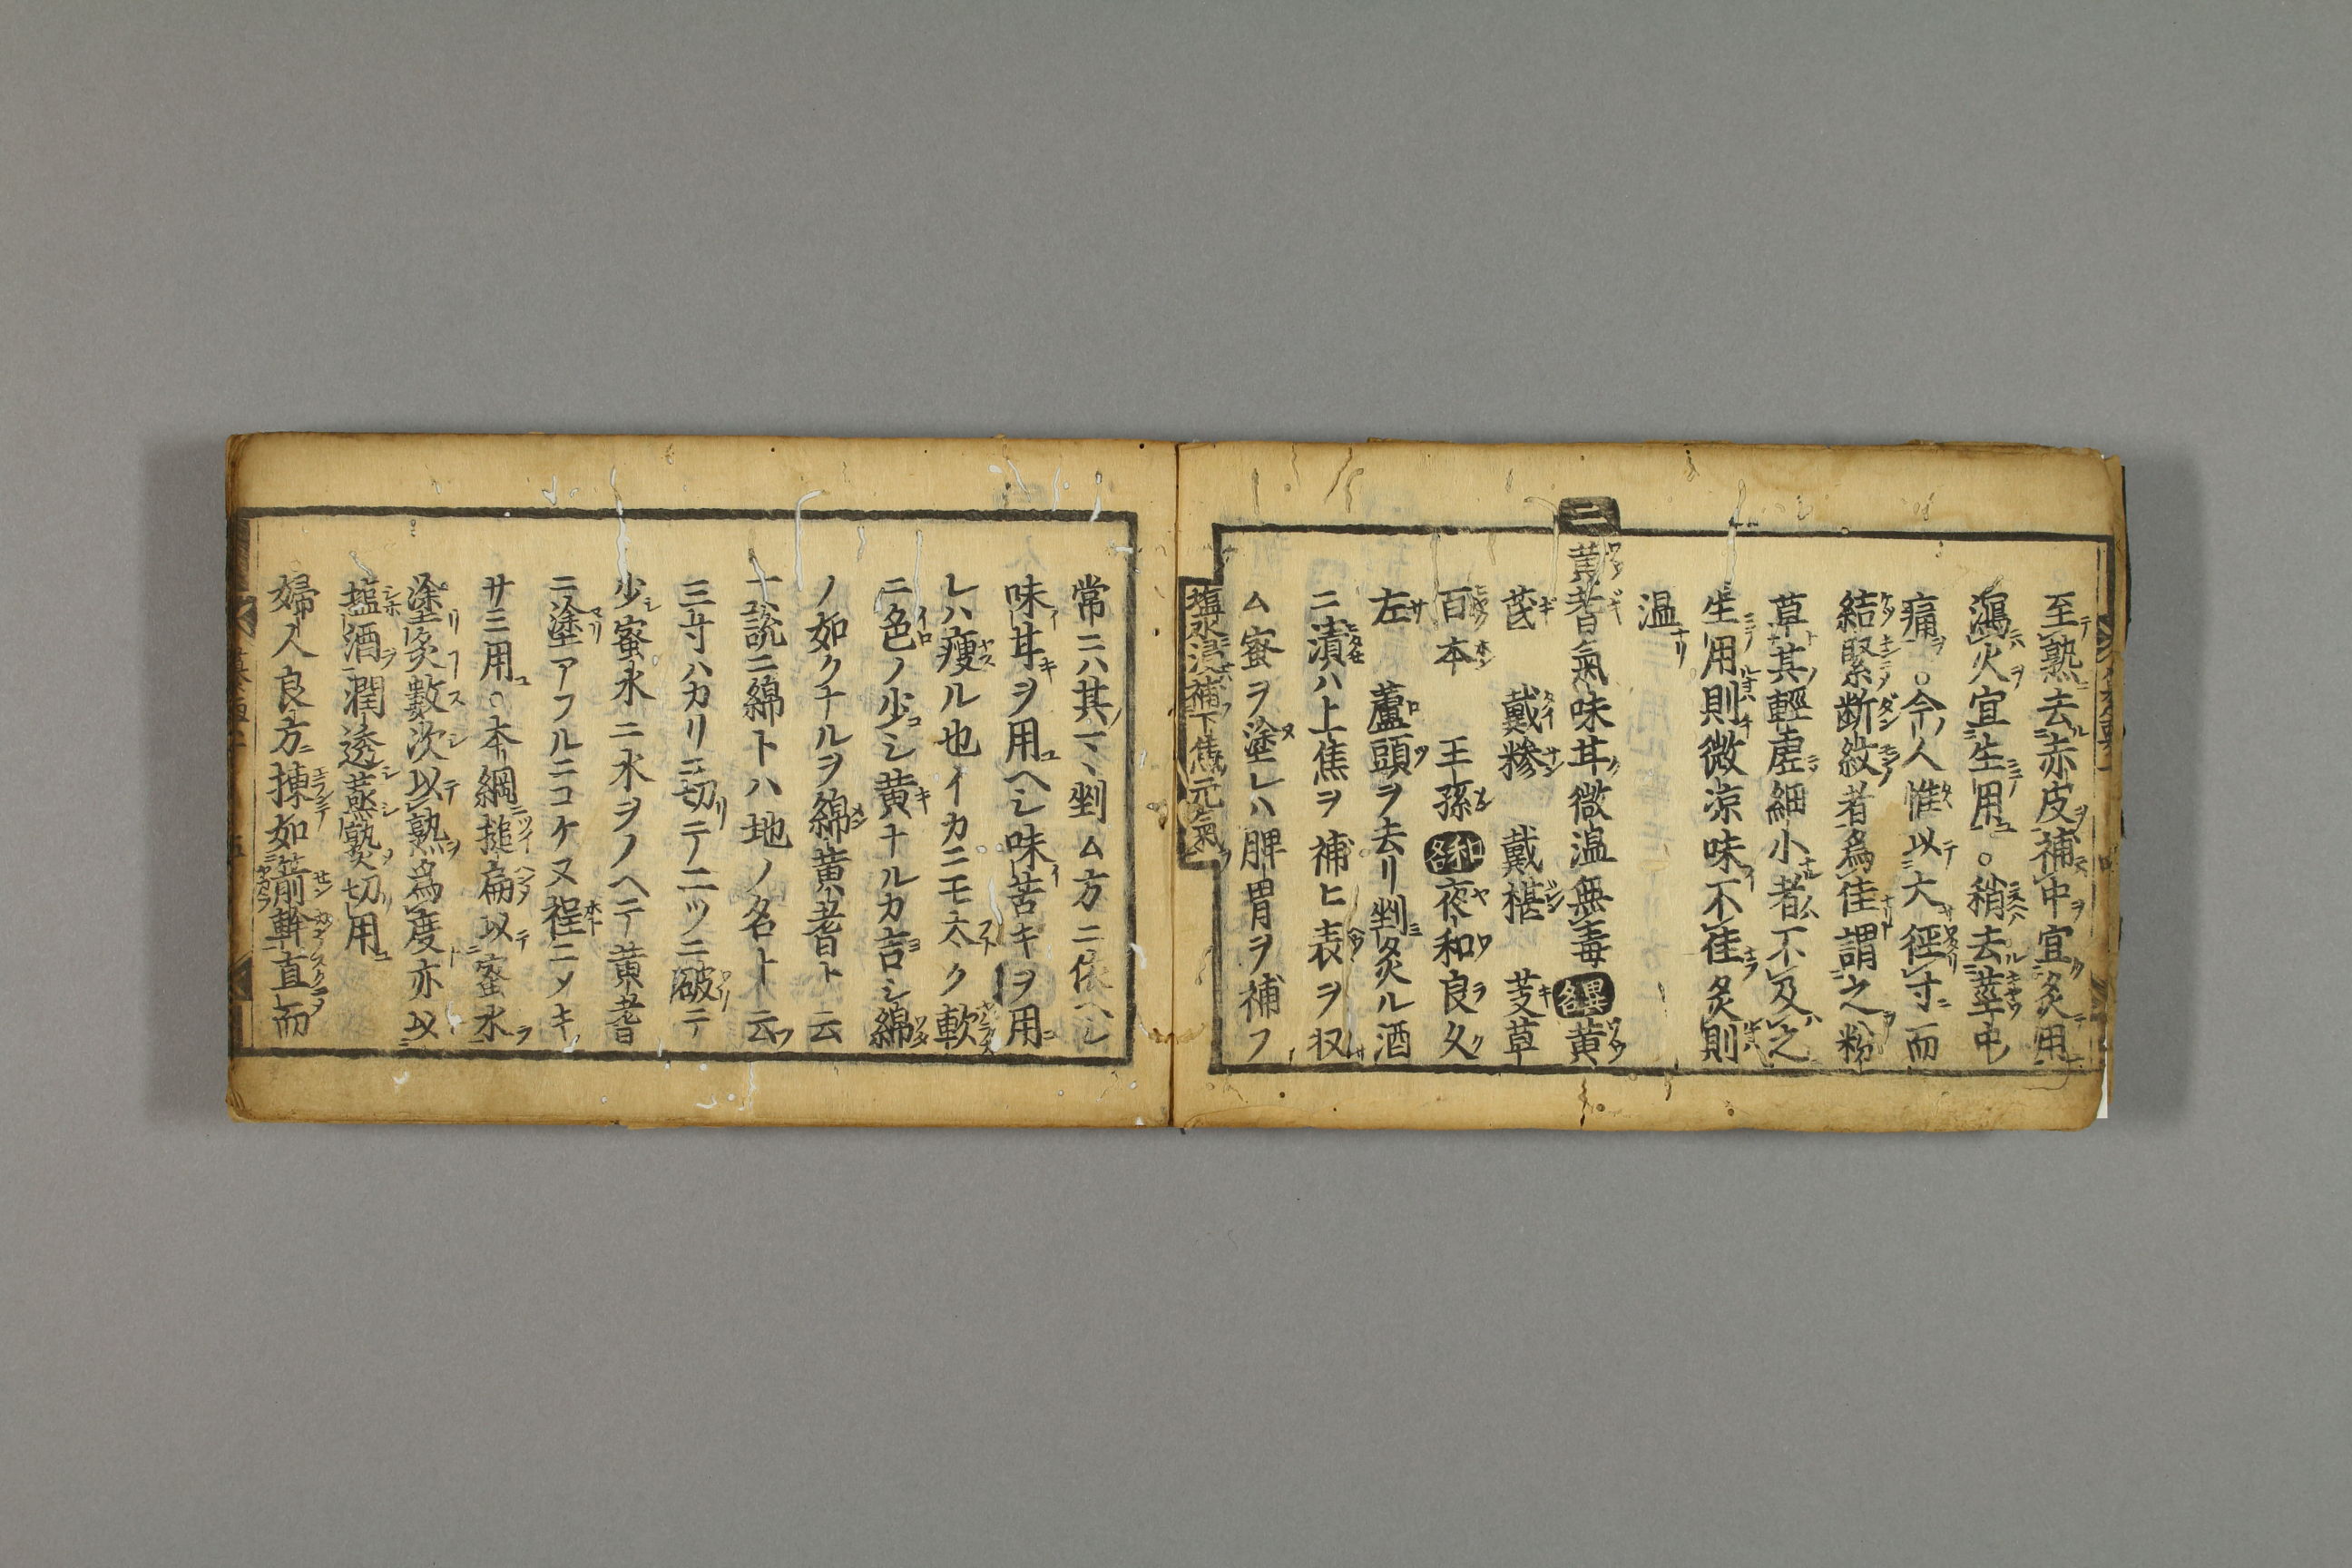 至熟去赤皮補中宜炙用
瀉火宜生用○稍去莖中
痛○今人惟以大徑寸而
結緊断紋者為佳謂之粉
草其輕虚細小者不及之
生用則微凉味不佳炙則
温
二 黄耆氣味甘微温無毒 異名 黄
芪 戴糝 戴椹 芰草
百本 王孫 和名 夜和良久
左 蘆頭ヲ去リ剉炙ル酒
ニ漬ハ上焦ヲ補ヒ表ヲ収
ム蜜ヲ塗レハ脾胃ヲ補フ
塩水浸補下焦元氣
常ニハ其マヽ剉ム方ニ依ヘシ
味甘キヲ用ヘシ味苦キヲ用
レハ痩ル也イカニモ太ク軟
ニ色ノ少シ黄ナルカ吉シ綿
ノ如クナルヲ綿黄耆ト云
十説ニ綿トハ地ノ名ト云
三寸ハカリニ切テ二ツニ破テ
少蜜水ニ水ヲノヘテ黄耆
ニ塗アフルニコケヌ程ニメキ
サミ用○本綱搥扁以蜜水
塗炙數次以熟為度亦以
塩酒潤透蒸熟切用
婦人良方ニ揀如箭幹直而